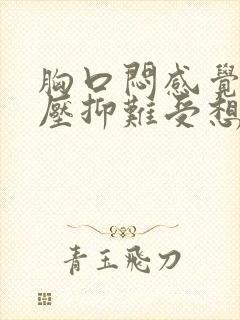 胸口悶感覺
壓抑難受想
青玉飛刀